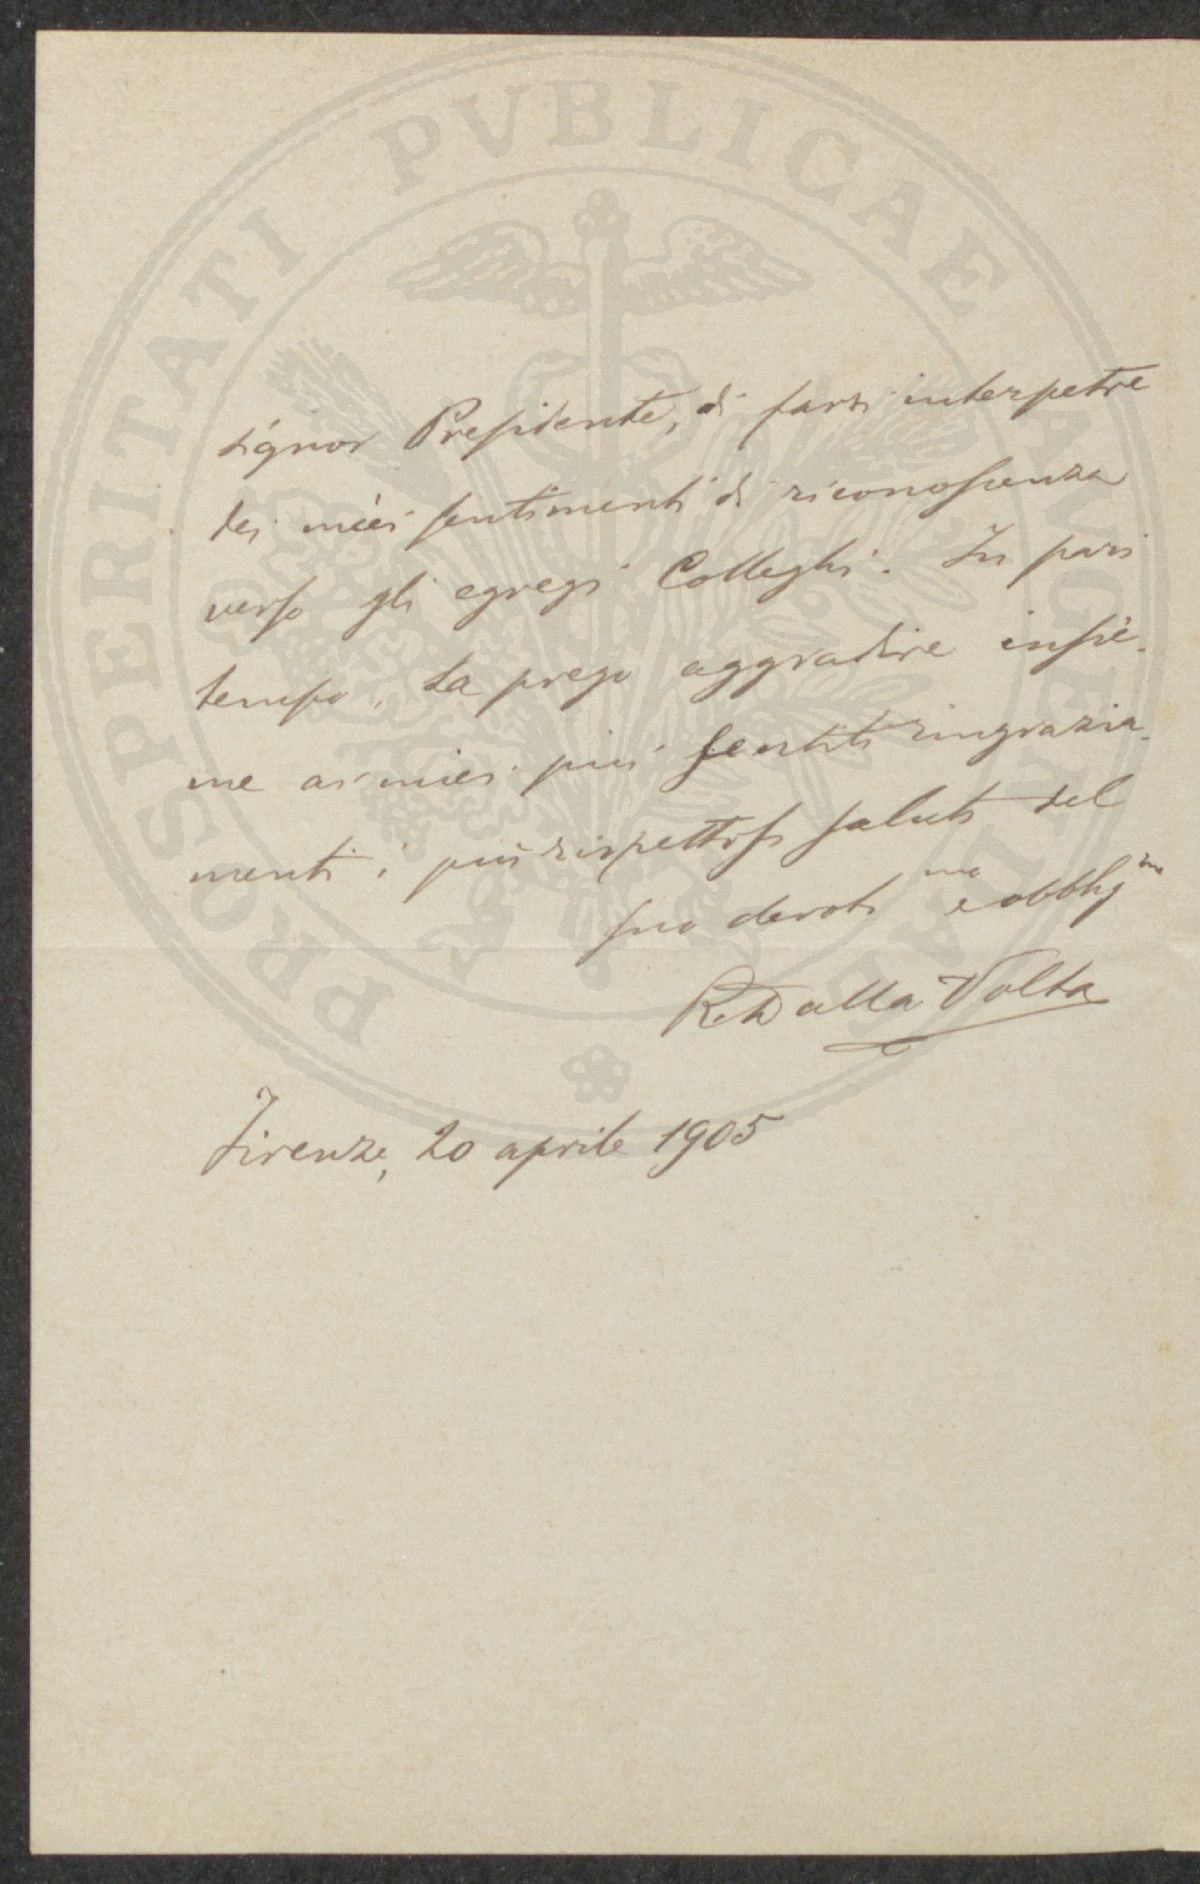 signor Presidente, di farsi interpetre
dei miei sentimenti di riconoscenza
verso gli egregi Colleghi. In pari
tempo, La prego aggradire insie-
me ai miei più sentiti ringrazia-
menti i più rispettosi saluti del
suo devotmo e obbligmo
R. Dalla Volta
Firenze, 20 aprile 1905
PROSPERITATI PVBLICAE AVGENDAE